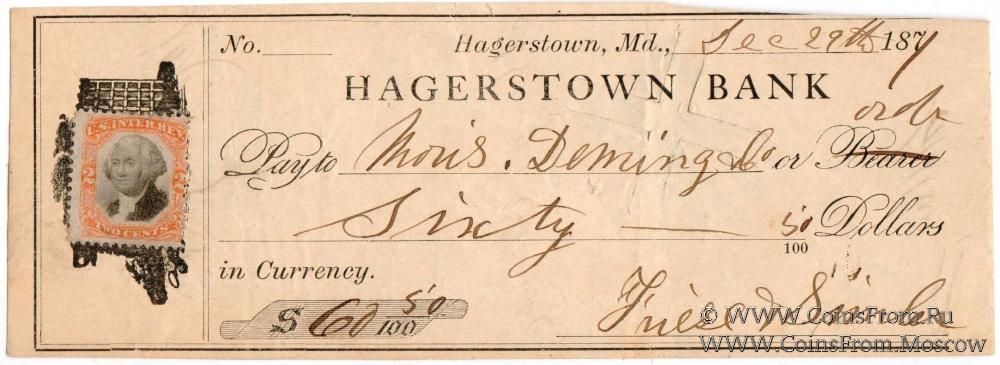 No. Hagerstown, Md., Dec 29th 1871
HAGERSTOWN BANK
order
Pay to Moris. Deming & Co or Bearer
Sixty — 50/100 Dollars
in Currency.
$ 60 50/100
Friese &
U.S. INTER. REV.
TWO CENTS
© WWW.CoinsFrom.Ru
WWW.CoinsFrom.Moscow